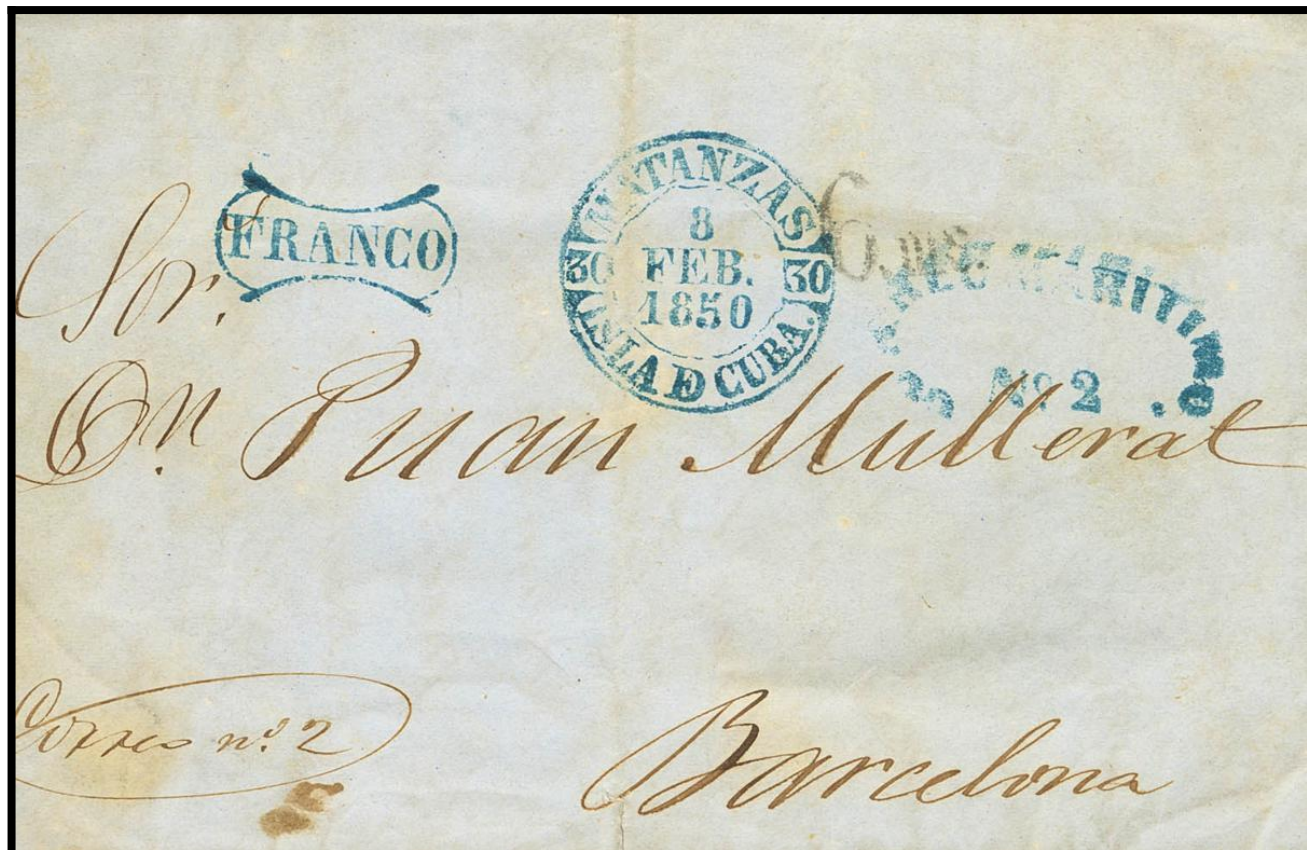 FRANCO
MATANZAS
30 8 30
FEB.
1850
ISLA DE CUBA.
6
MARITIMO
Nº 2
Sor.
Dn. Juan Mullerat
Correo nº 2
Barcelona